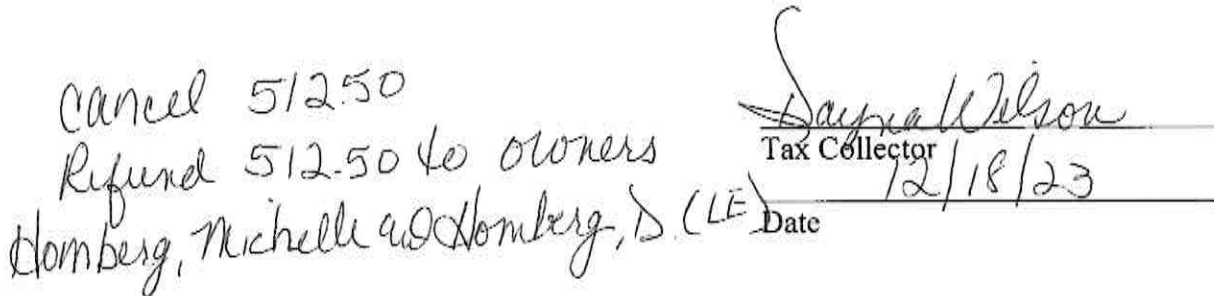 Cancel 512.50
Refund 512.50 to owners
Homberg, Michelle and Homberg, D. (LE)
Dayna Wilson
Tax Collector
12/18/23
Date